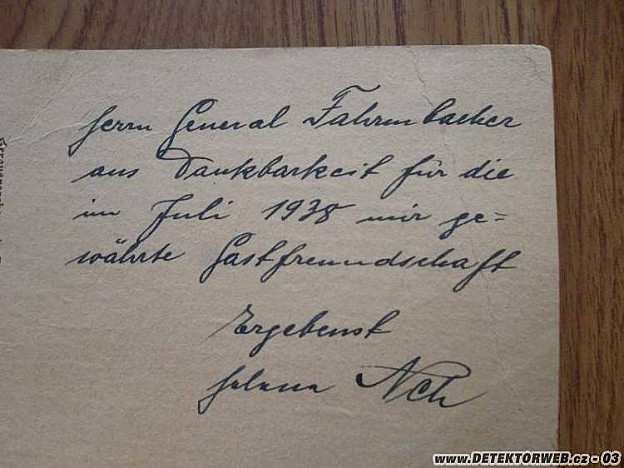 Herrn General Fahrmbacher
aus Dankbarkeit für die
im Juli 1938 mir ge=
währte Gastfreundschaft
Ergebenst
www.DETEKTORWEB.cz - 03